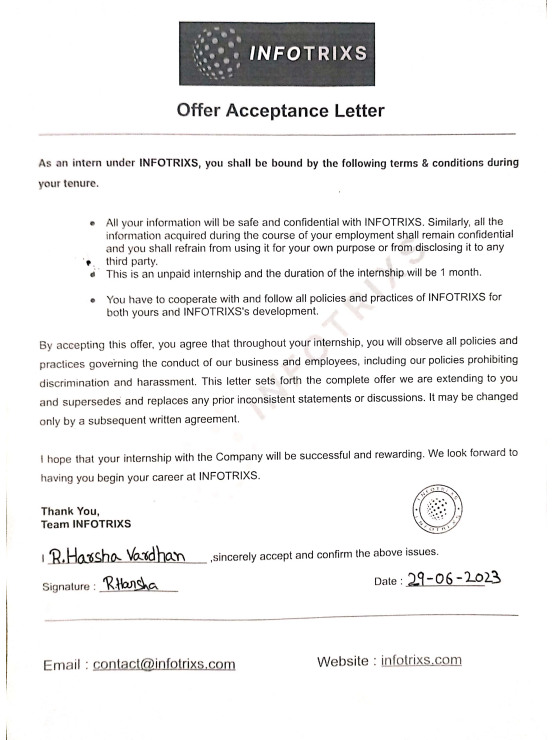 INFOTRIXS
Offer Acceptance Letter
As an intern under INFOTRIXS, you shall be bound by the following terms & conditions during
your tenure.
• All your information will be safe and confidential with INFOTRIXS. Similarly, all the
information acquired during the course of your employment shall remain confidential
and you shall refrain from using it for your own purpose or from disclosing it to any
third party.
• This is an unpaid internship and the duration of the internship will be 1 month.
• You have to cooperate with and follow all policies and practices of INFOTRIXS for
both yours and INFOTRIXS's development.
INFOTRIXS
By accepting this offer, you agree that throughout your internship, you will observe all policies and
practices governing the conduct of our business and employees, including our policies prohibiting
discrimination and harassment. This letter sets forth the complete offer we are extending to you
and supersedes and replaces any prior inconsistent statements or discussions. It may be changed
only by a subsequent written agreement.
I hope that your internship with the Company will be successful and rewarding. We look forward to
having you begin your career at INFOTRIXS.
Thank You,
Team INFOTRIXS
I R.Harsha Vardhan ,sincerely accept and confirm the above issues.
Signature : R.Harsha Date : 29-06-2023
Email : contact@infotrixs.com Website : infotrixs.com